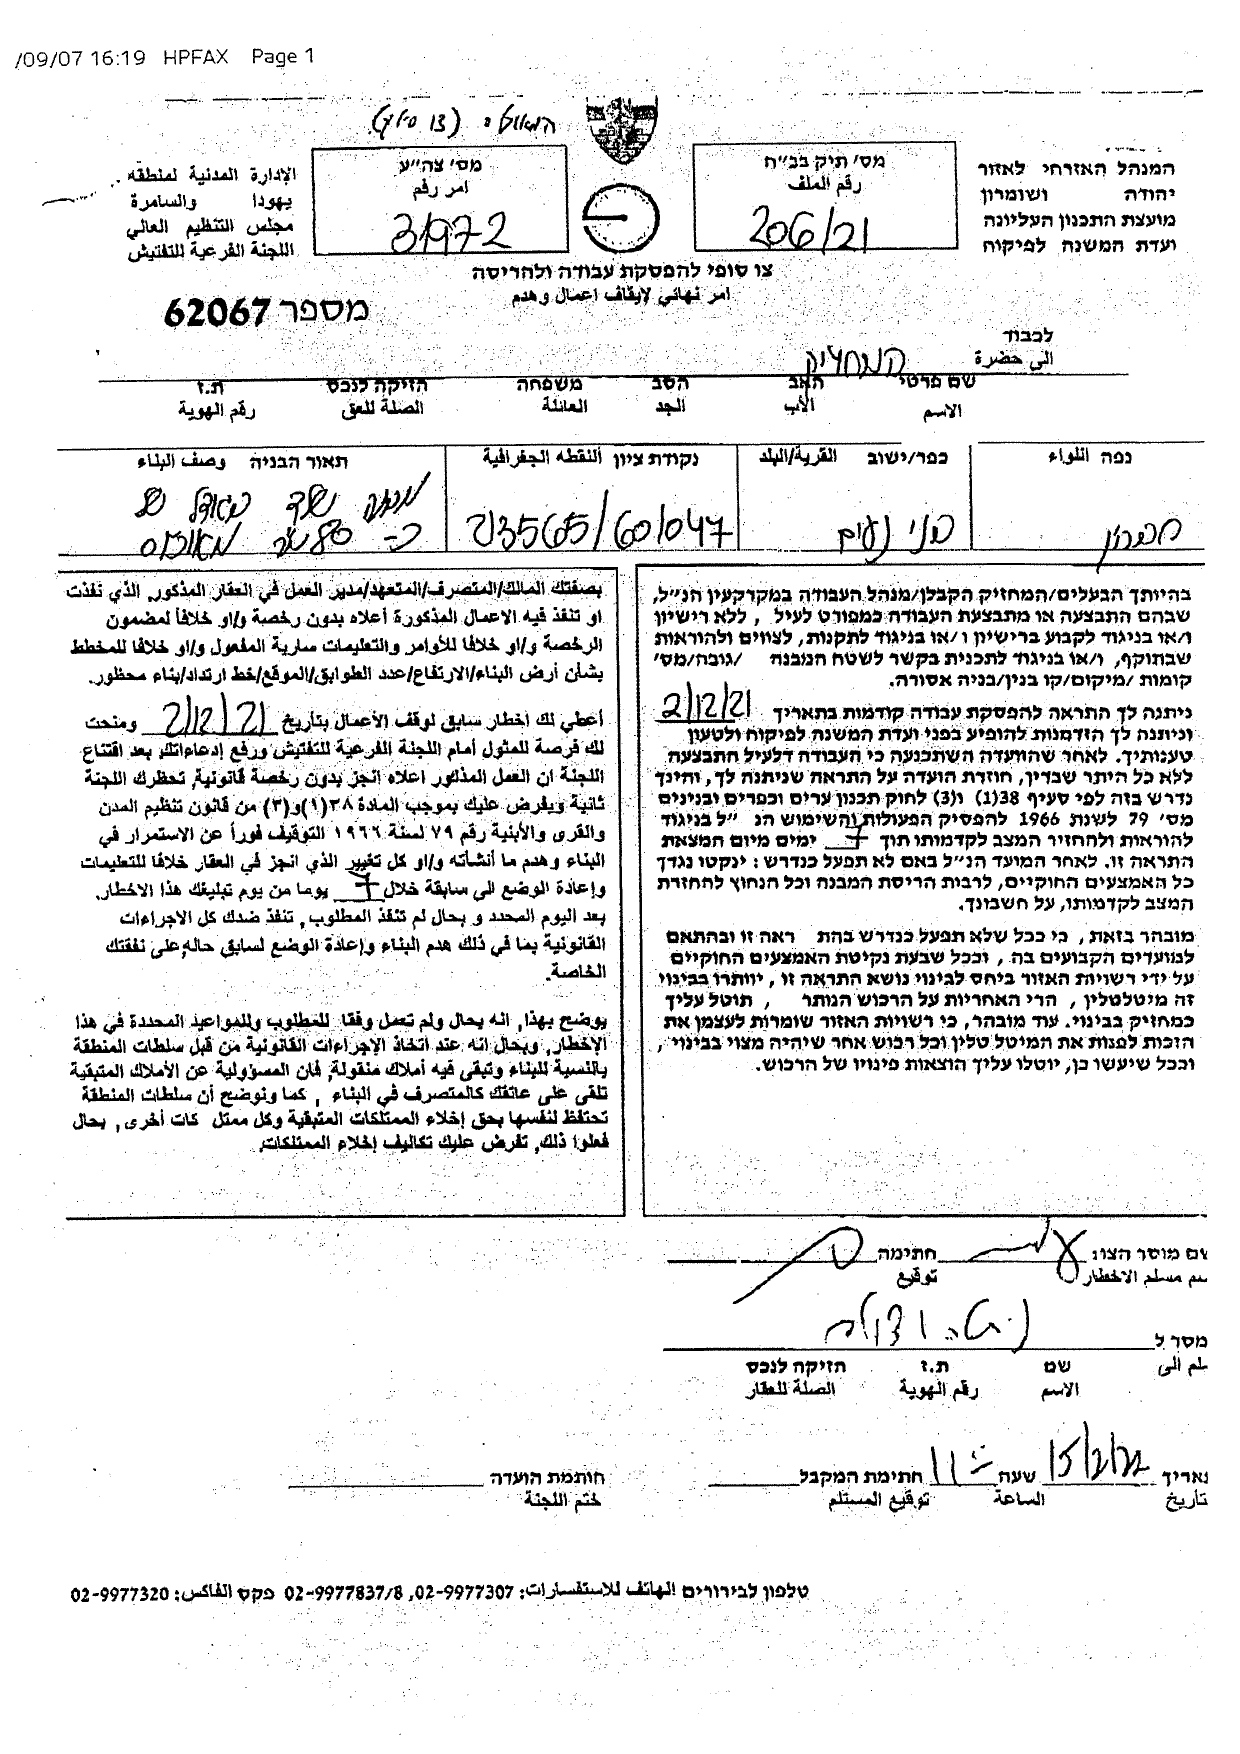 /09/07 16:19 HPFAX Page 1
המנהל האזרחי לאזור
יהודה ושומרון
מועצת התכנון העליונה
ועדת המשנה לפיקוח
מס׳ תיק בב״ח
رقم الملف
206/21
מס׳ צה״ע
امر رقم
31972
الإدارة المدنية لمنطقة
يهودا والسامرة
مجلس التنظيم العالي
اللجنة الفرعية للتفتيش
צו סופי להפסקת עבודה ולהריסה
امر نهائي لإيقاف اعمال وهدم
מספר 62067
לכבוד
الى حضرة
המחזיק
שם פרטי האב הסב משפחה הזיקה לנכס ת.ז
الاسم الأب الجد العائلة الصلة للعق رقم الهوية
נפה اللواء
כפר/ישוב القرية/البلد
נקודת ציון النقطه الجغرافية
תאור הבניה وصف البناء
חברון
בני נעים
מבנה
בגודל של
כ-
בהיותך הבעלים/המחזיק הקבלן/מנהל העבודה במקרקעין הנ״ל,
שבהם התבצעה או מתבצעת העבודה כמפורט לעיל, ללא רישיון
ו/או בניגוד לקבוע ברישיון ו/או בניגוד לתקנות, לצווים ולהוראות
שבתוקף, ו/או בניגוד לתכנית בקשר לשטח המבנה /גובה/מס׳
קומות /מיקום/קו בנין/בניה אסורה.
ניתנה לך התראה להפסקת עבודה קודמות בתאריך 2/12/21
וניתנה לך הזדמנות להופיע בפני ועדת המשנה לפיקוח ולטעון
טענותיך. לאחר שהוועדה השתכנעה כי העבודה דלעיל התבצעה
ללא כל היתר שבדין, חוזרת הועדה על התראה שניתנה לך, והינך
נדרש בזה לפי סעיף 38(1) ו(3) לחוק תכנון ערים וכפרים ובנינים
מס׳ 79 לשנת 1966 להפסיק הפעולות והשימוש הנ ״ל בניגוד
להוראות ולהחזיר המצב לקדמותו תוך 7 ימים מיום המצאת
התראה זו. לאחר המועד הנ״ל באם לא תפעל כנדרש: ינקטו נגדך
כל האמצעים החוקיים, לרבות הריסת המבנה וכל הנחוץ להחזרת
המצב לקדמותו, על חשבונך.
מובהר בזאת, כי ככל שלא תפעל כנדרש בהת ראה זו ובהתאם
למועדים הקבועים בה, וככל שבעת נקיטת האמצעים החוקיים
על ידי רשויות האזור ביחס לבינוי נושא התראה זו, יוותרו בבינוי
זה מיטלטלין, הרי האחריות על הרכוש הנותר, תוטל עליך
כמחזיק בבינוי. עוד מובהר, כי רשויות האזור שומרות לעצמן את
הזכות לפנות את המיטל טלין וכל רכוש אחר שיהיה מצוי בבינוי,
וככל שיעשו כן, יוטלו עליך הוצאות פינויו של הרכוש.
بصفتك المالك/المتصرف/المتعهد/مدير العمل في العقار المذكور, الذي نفذت
او تنفذ فيه الاعمال المذكورة أعلاه بدون رخصة و/او خلافا لمضمون
الرخصة و/او خلافا للأوامر والتعليمات سارية المفعول و/او خلافا للمخطط
بشأن أرض البناء/الارتفاع/عدد الطوابق/الموقع/خط ارتداد/بناء محظور.
أعطي لك إخطار سابق لوقف الأعمال بتاريخ 2/12/21 ومنحت
لك فرصة للمثول أمام اللجنة الفرعية للتفتيش ورفع إدعاءاتك, بعد اقتناع
اللجنة ان العمل المذكور اعلاه انجز بدون رخصة قانونية, تحظرك اللجنة
ثانية ويفرض عليك بموجب المادة ٣٨(١)و(٣) من قانون تنظيم المدن
والقرى والأبنية رقم ٧٩ لسنة ١٩٦٦ التوقيف فوراً عن الاستمرار في
البناء وهدم ما أنشأته و/او كل تغيير الذي انجز في العقار خلافا للتعليمات
وإعادة الوضع الى سابقة خلال 7 يوما من يوم تبليغك هذا الاخطار.
بعد اليوم المحدد و بحال لم تنفذ المطلوب, تنفذ ضدك كل الاجراءات
القانونية بما في ذلك هدم البناء وإعادة الوضع لسابق حاله, على نفقتك
الخاصة.
يوضح بهذا, انه بحال ولم تعمل وفقا للمطلوب وللمواعيد المحددة في هذا
الإخطار, وبحال انه عند اتخاذ الإجراءات القانونية من قبل سلطات المنطقة
بالنسبة للبناء وتبقى فيه أملاك منقولة, فان المسؤولية عن الأملاك المتبقية
تلقى على عاتقك كالمتصرف في البناء, كما ونوضح أن سلطات المنطقة
تحتفظ لنفسها بحق إخلاء الممتلكات المتبقية وكل ممتل كات أخرى, بحال
فعلوا ذلك, تفرض عليك تكاليف إخلاء الممتلكات.
שם מוסר הצו: חתימה
سم مسلم الاخطار توقيع
מסר ל
لم الى
שם ת.ז הזיקה לנכס
الاسم رقم الهوية الصلة للعقار
תאריך 15/2/22 שעה חתימת המקבל חותמת הועדה
تاريخ الساعة توقيع المستلم ختم اللجنة
טלפון לבירורים الهاتف للاستفسارات: 02-9977307, 02-9977837/8 פקס الفاكس: 02-9977320